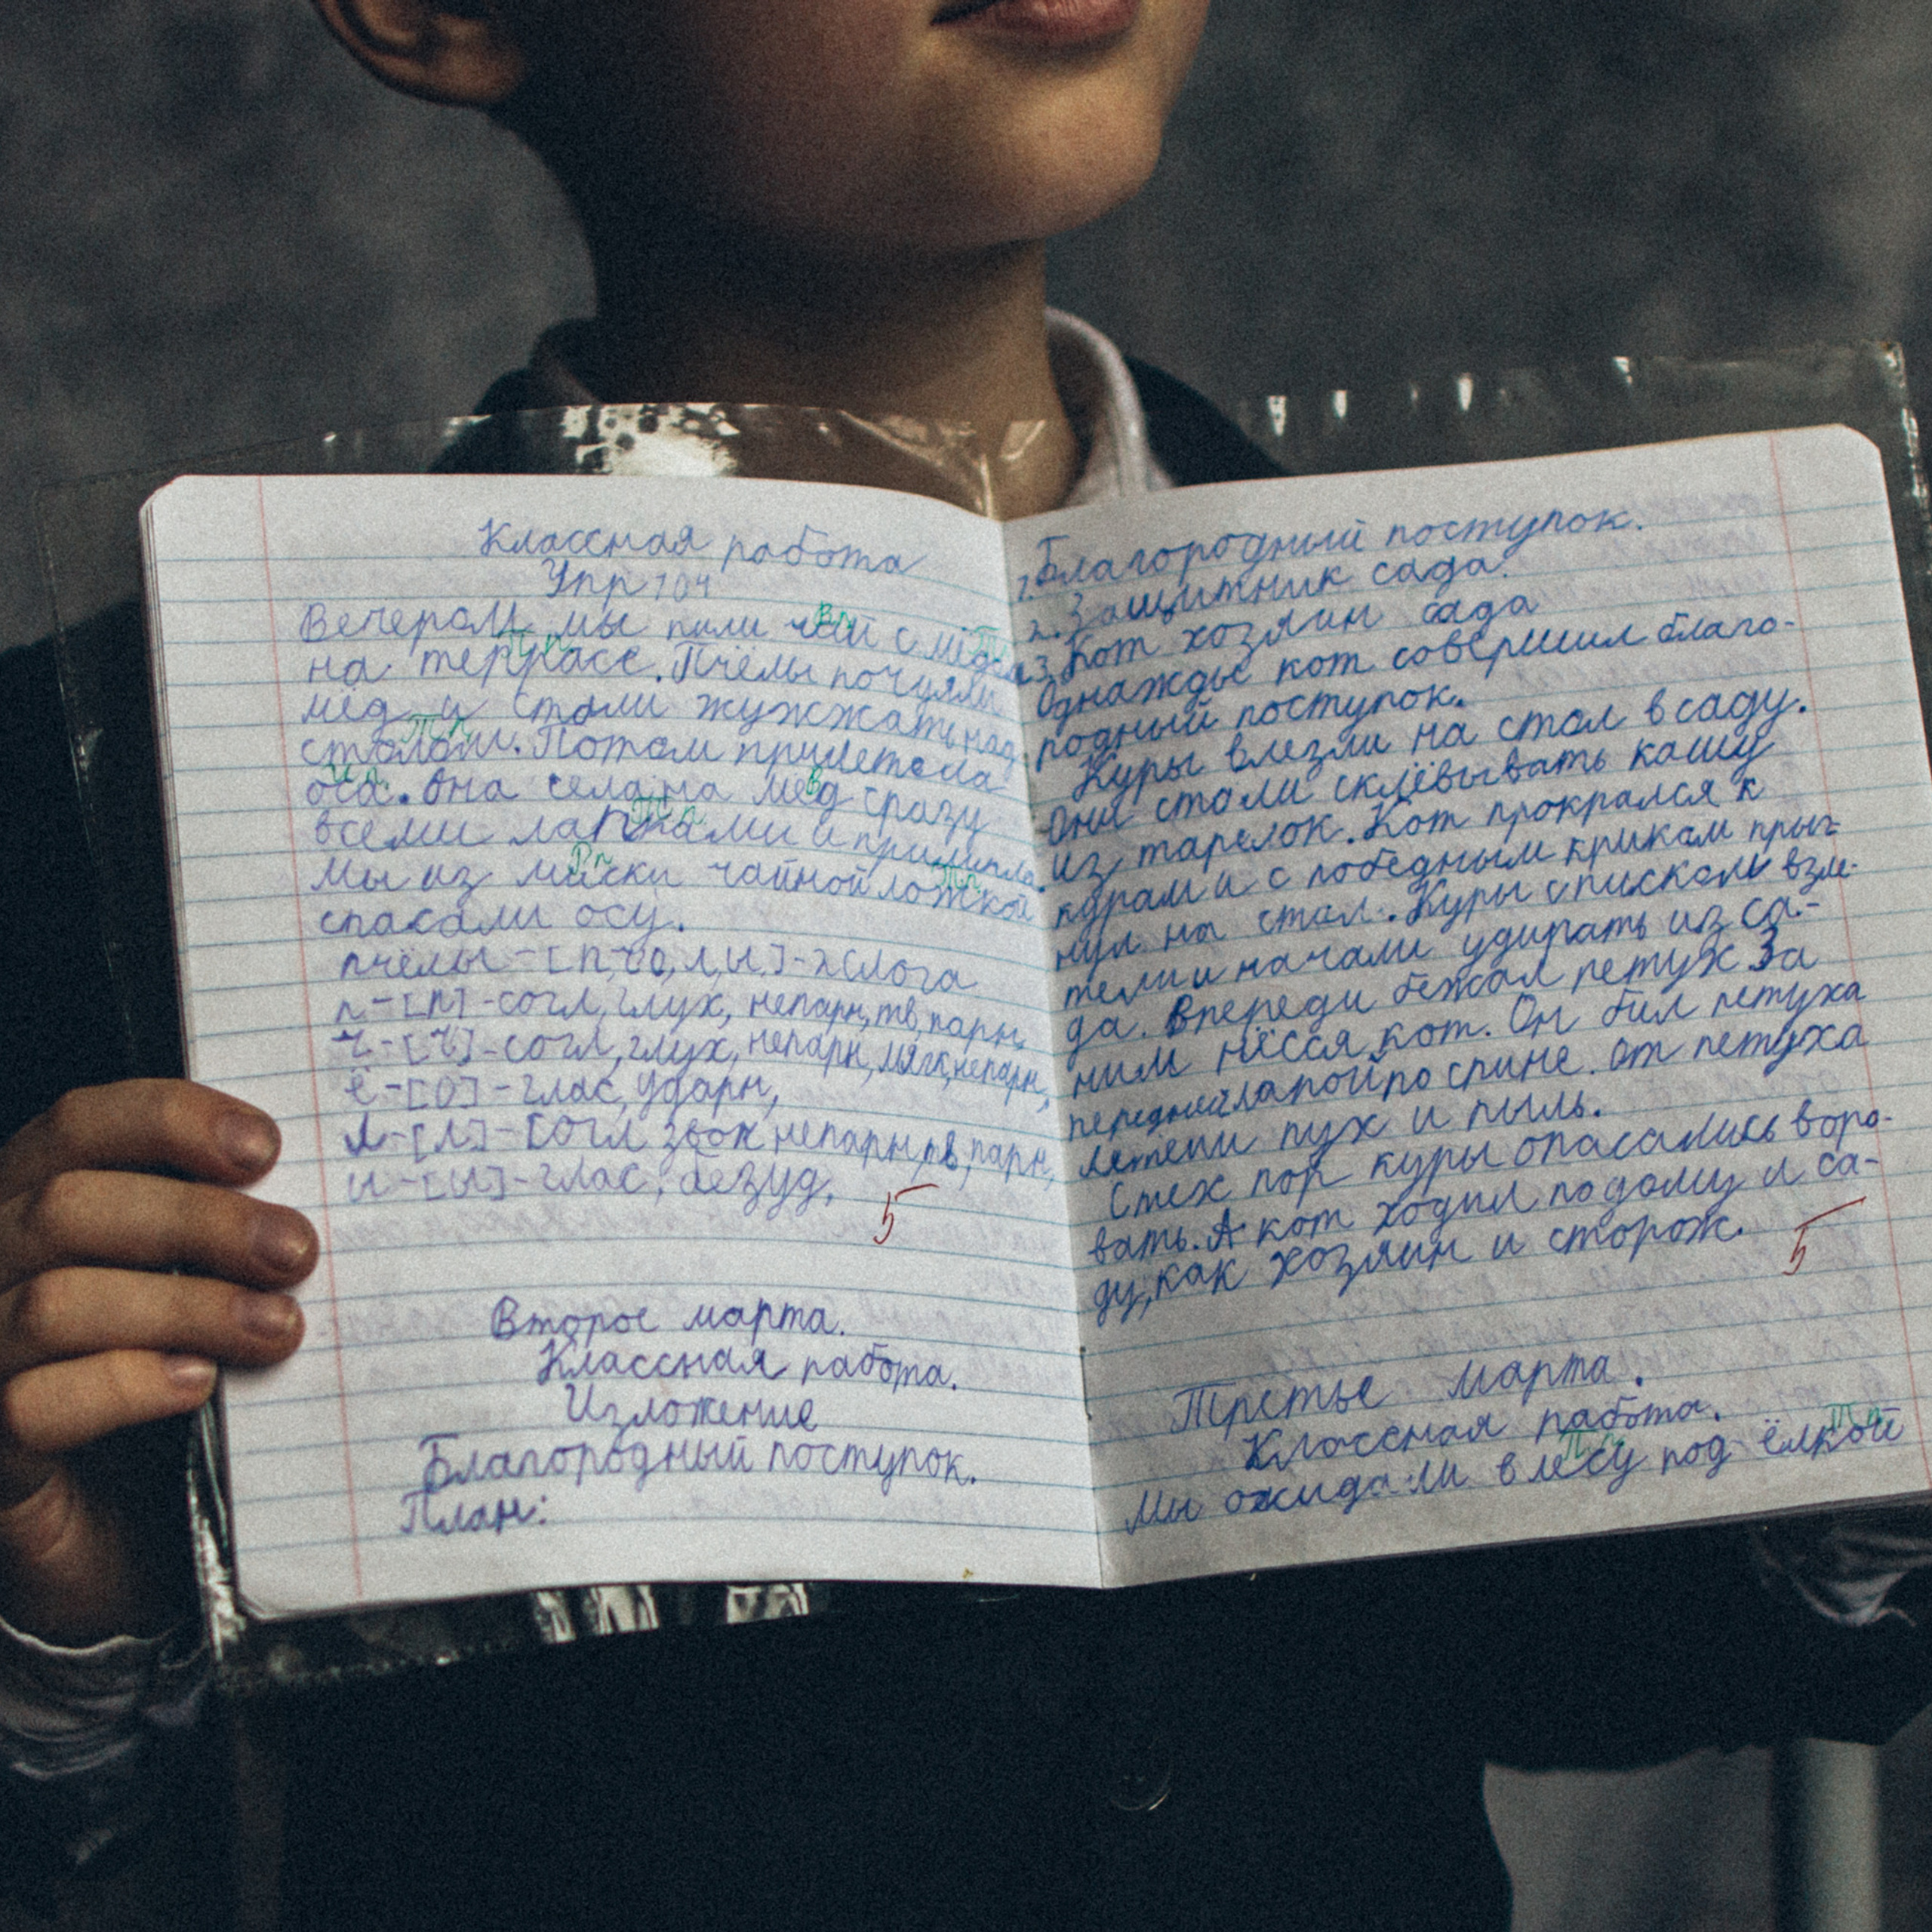 Классная работа
Упр 104
Вечером мы пили чай с мёдом
на террасе. Пчёлы почуяли
мёд и стали жужжать над
столом. Потом прилетела
оса. Она села на мёд сразу
всеми лапками и прилипла.
Мы из миски чайной ложкой
спасали осу.
пчёлы - [п, ч, о, л, ы,] - 2 слога
п - [п] - согл, глух, непарн, тв, парн,
ч - [ч] - согл, глух, непарн, мягк, непарн,
ё - [о] - глас, ударн,
л - [л] - согл звон непарн, тв, парн,
ы - [ы] - глас, безуд,
5
Второе марта.
Классная работа.
Изложение
Благородный поступок.
План:
1. Благородный поступок.
2. Защитник сада.
3. Кот хозяин сада
Однажды кот совершил благо-
родный поступок.
Куры влезли на стол в саду.
Они стали склёвывать кашу
из тарелок. Кот прокрался к
курам и с победным криком прыг-
нул на стол. Куры с писком взле-
тели и начали удирать из са-
да. Впереди бежал петух За
ним нёсся кот. Он бил петуха
передней лапой по спине. От петуха
летели пух и пыль.
С тех пор куры опасались воро-
вать. А кот ходил по дому и са-
ду, как хозяин и сторож.
5
Третье марта.
Классная работа.
Мы ожидали в лесу под ёлкой